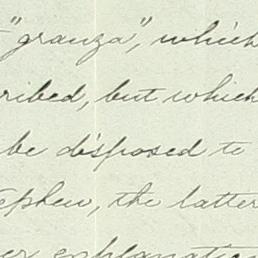 "granza", which
ribed, but which
be disposed to
ephen, the latter
er explanation